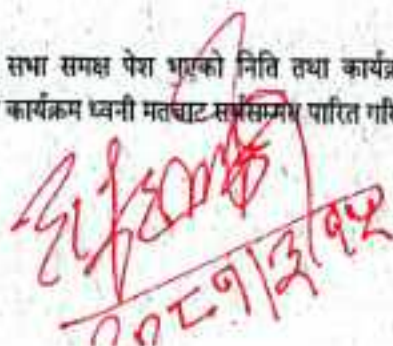 सभा समक्ष पेश भएको निति तथा कार्यक्र
कार्यक्रम ध्वनी मतबाट सर्वसम्मत पारित गरि
२०८१/३/१५